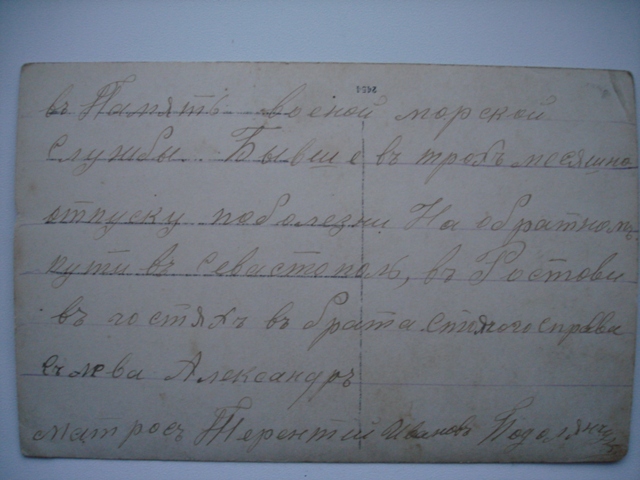 2454
въ Память военой морской
службы. Бывше въ трохъ месяшно
отпуску поболезни На обратномъ
пути въ севастополь, въ Ростови
въ гостяхъ в брата стиного справа
слева Александръ
матросъ Терентий Ивановъ